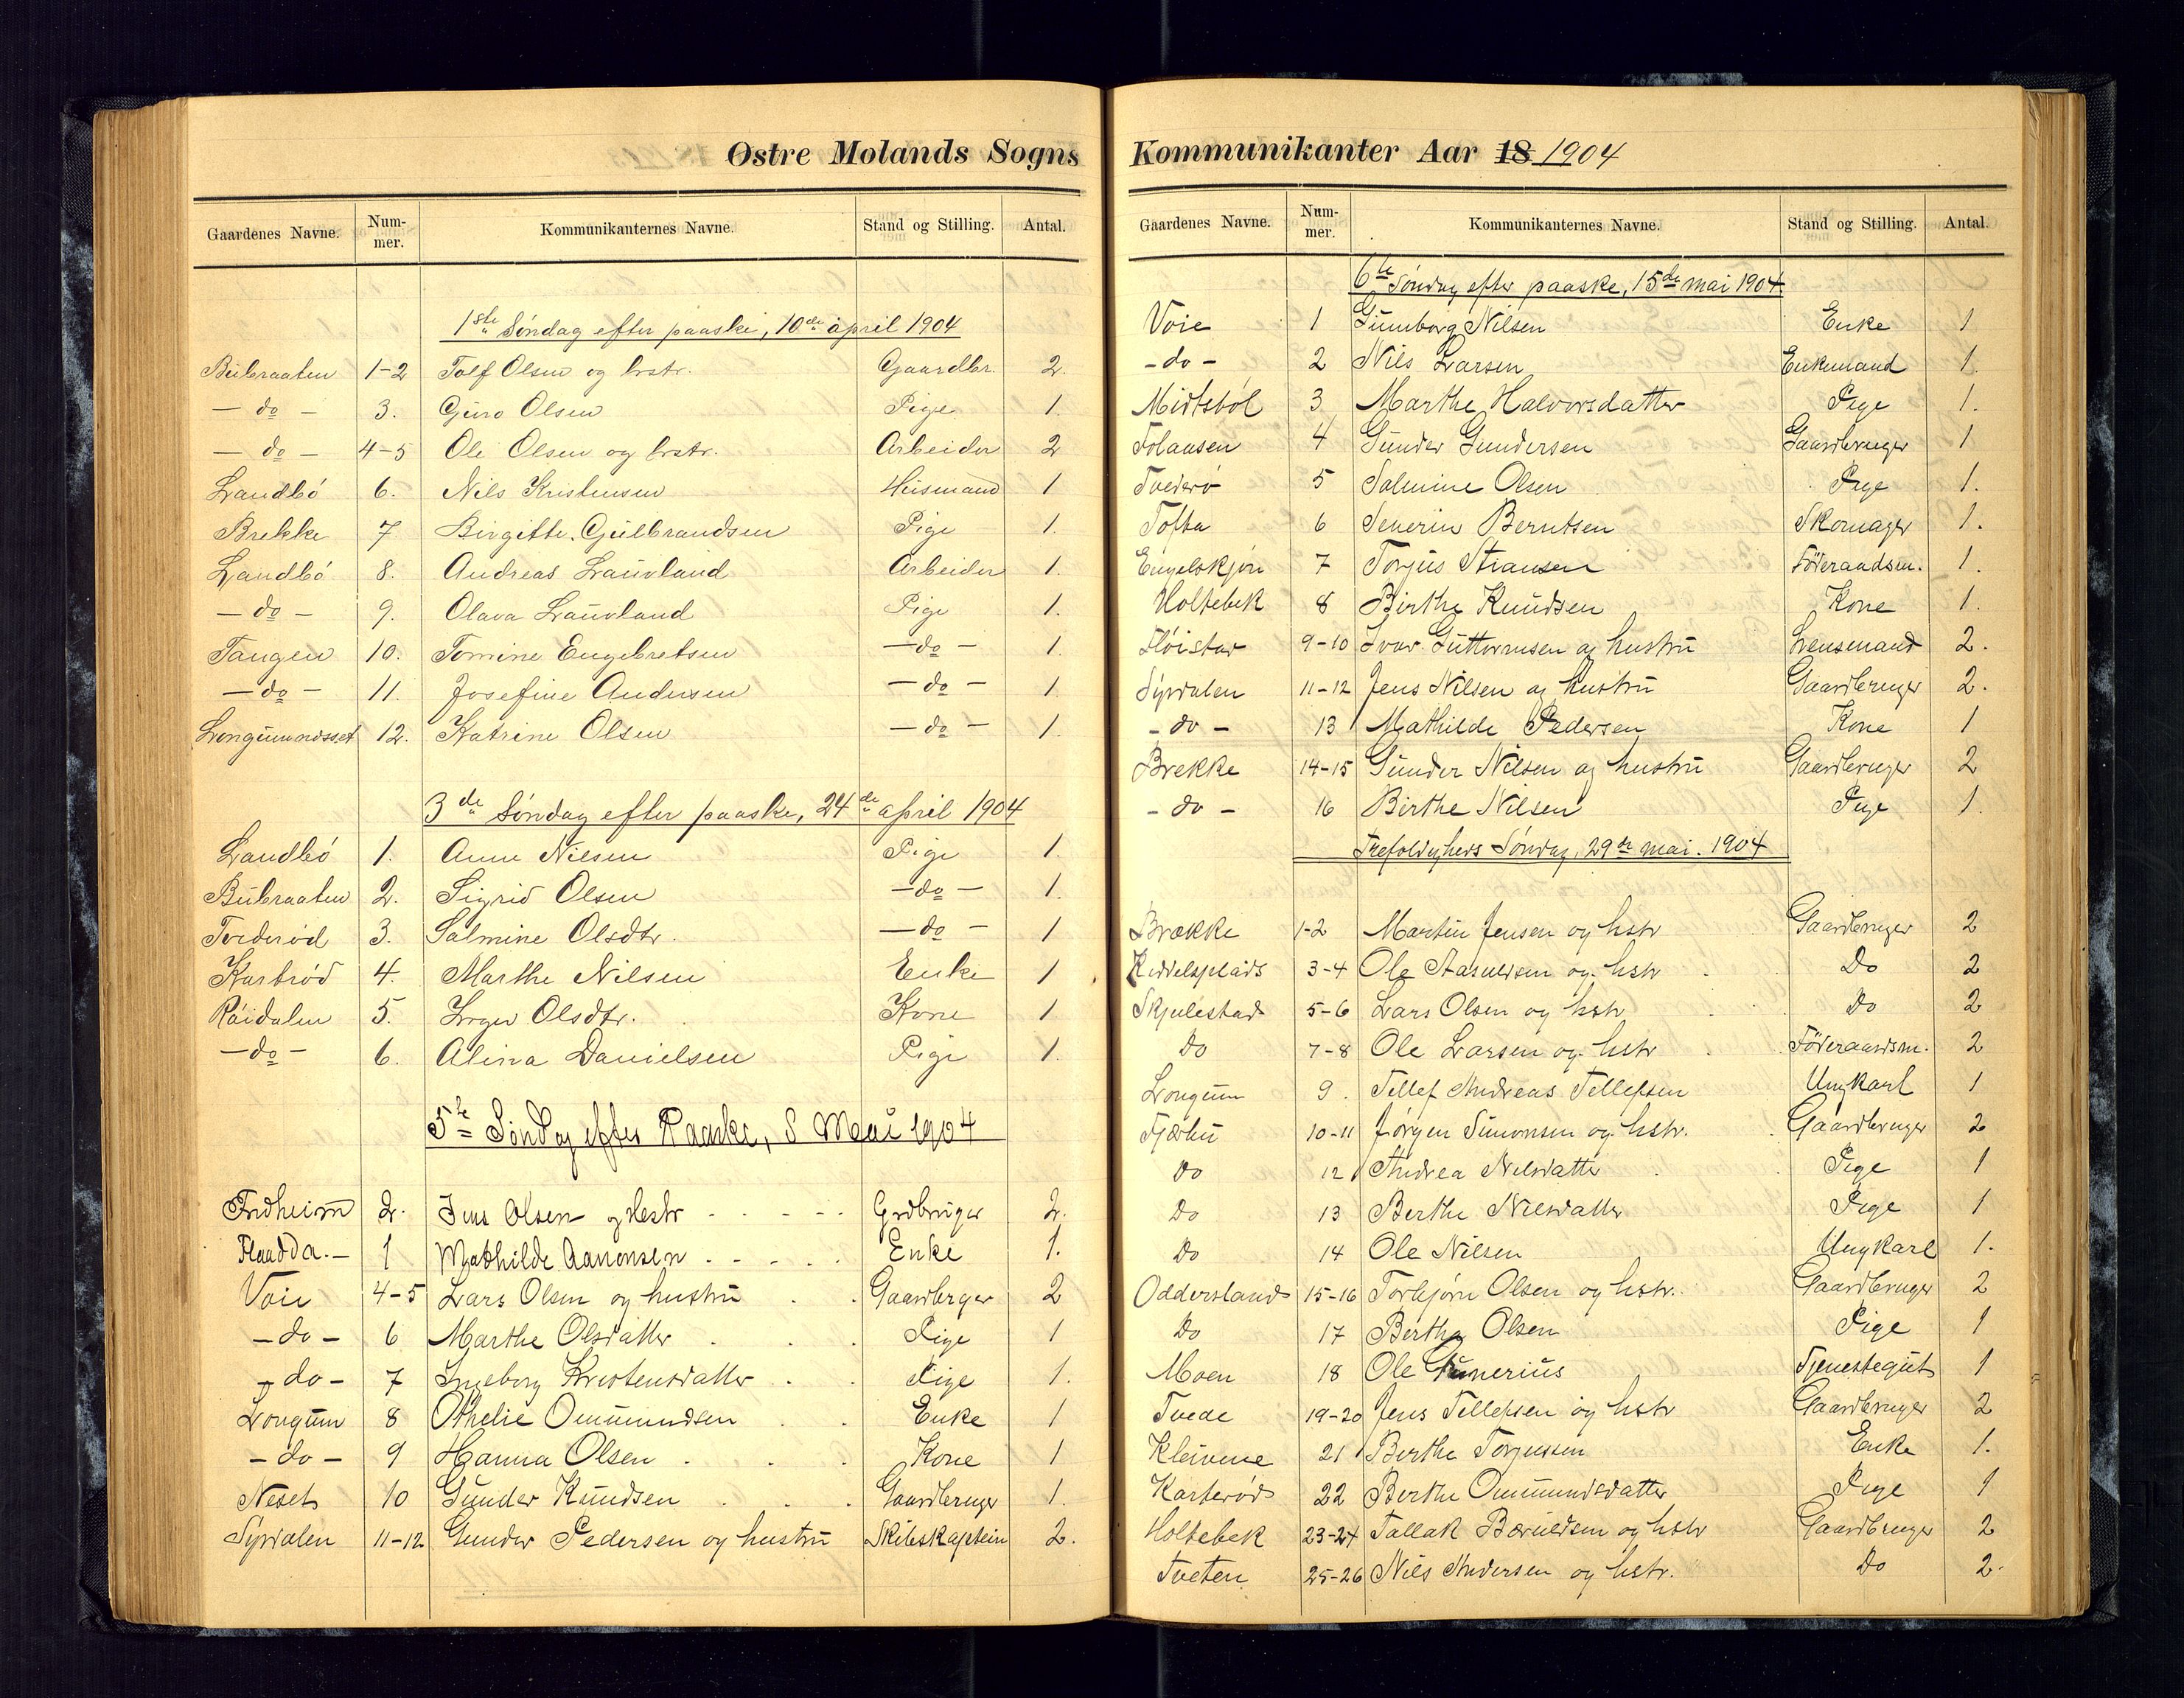 Østre Molands Sogns
Gaardenes Navne. Num-mer. Kommunikanternes Navne. Stand og Stilling. Antal.
1ste Søndag efter paaske, 10de april 1904
Bübraaten 1-2 Tolf Olsen og hstr. Gaardbr. 2.
- do - 3. Guro Olsen Pige 1.
- do - 4-5 Ole Olsen og hstr. Arbeider 2
Landbö 6. Nils Kristensen Husmand 1
Brekke 7 Birgitte Gulbrandsen Pige 1.
Landbö 8. Andreas Lauvland Arbeider 1.
- do - 9. Olava Lauvland Pige 1.
Tangen 10. Tomine Engebretsen - do - 1.
- do - 11. Josefine Andersen - do - 1.
Longumnordset 12. Katrine Olsen - do - 1.
3de Søndag efter paaske, 24de april 1904
Landbö 1. Anne Nilsen Pige 1.
Bübraaten 2. Sigrid Olsen - do - 1.
Tvederød 3. Salmine Olsdtr. - do - 1
Karbrød 4. Marthe Nilsen Enke 1
Röidalen 5. Inger Olsdtr. Kone 1
- do - 6. Alina Danielsen Pige 1.
5te Søndag efter Paaske, 8 Mai 1904
Fredheim 2. Jens Olsen og Hestr Grdbruger 2.
Flaadda. 1 Mathilde Aanonsen Enke 1.
Voie 4-5 Lars Olsen og hustru Gaardbrger 2
- do - 6 Marthe Olsdatter Pige 1
- do - 7 Ingeborg Kristensdatter Pige 1.
Longum 8 Othelie Ommundsen Enke 1
- do - 9 Hanna Olsen Kone 1
Neset 10 Gunder Knudsen Gaardbruger 1.
Syrdalen 11-12 Gunder Pedersen og hustru Skibskaptein 2.
Kommunikanter Aar 18 1904
Gaardenes Navne. Num-mer. Kommunikanternes Navne. Stand og Stilling. Antal.
6te Søndag efter paaske, 15de mai 1904.
Voie 1 Gunborg Nilsen Enke 1
- do - 2 Nils Larsen Enkemand 1.
Midtsböl 3 Marthe Halvorsdatter Pige 1.
Folaasen 4 Gunder Gundersen Gaardbruger 1
Tvederö 5 Salmine Olsen Pige 1.
Tofta 6 Severin Berntsen Skomager 1.
Engelskjön 7 Torjus Stiansen Föderaadsm. 1.
Holtebek 8 Birthe Knudsen Kone 1.
Fløistad 9-10 Ivar Guttormsen og hustru Lensmand 2.
Syrdalen 11-12 Jens Nilsen og hustru Gaardbruger 2.
- do - 13 Mathilde Pedersen Kone 1
Brekke 14-15 Gunder Nilsen og hustru Gaardbruger 2
- do - 16 Birthe Nilsen Pige 1.
Trefoldigheds Søndag, 29de mai. 1904
Brække 1-2 Martin Jensen og hstr Gaardbruger 2
Kiddelsplads 3-4 Ole Aasuldsen og hstr Do 2
Skjulestad 5-6 Lars Olsen og hstr Do 2
Do 7-8 Ole Larsen og hstr Föderaadsm. 2
Longum 9. Tellef Andreas Tellefsen Ungkarl 1
Fjærbu 10-11 Jørgen Simonsen og hstr. Gaardbruger 2
Do 12 Andrea Nilsdatter Pige 1
Do 13 Berthe Nilsdatter Pige 1
Do 14 Ole Nilsen Ungkarl 1.
Oddersland 15-16 Torbjørn Olsen og hstr. Gaardbruger 2
Do 17 Berthe Olsen Pige 1
Moen 18 Ole Tjenestegut 1
Tvede 19-20 Jens Tellefsen og hstr Gaardbruger 2
Kleivene 21 Berthe Torjussen Enke 1.
Karterød 22 Berthe Ommundsdatter Pige 1
Holtebek 23-24 Tallak Bæruldsen og hstr Gaardbruger 2
Tveten 25-26 Nils Andersen og hstr. Do 2.